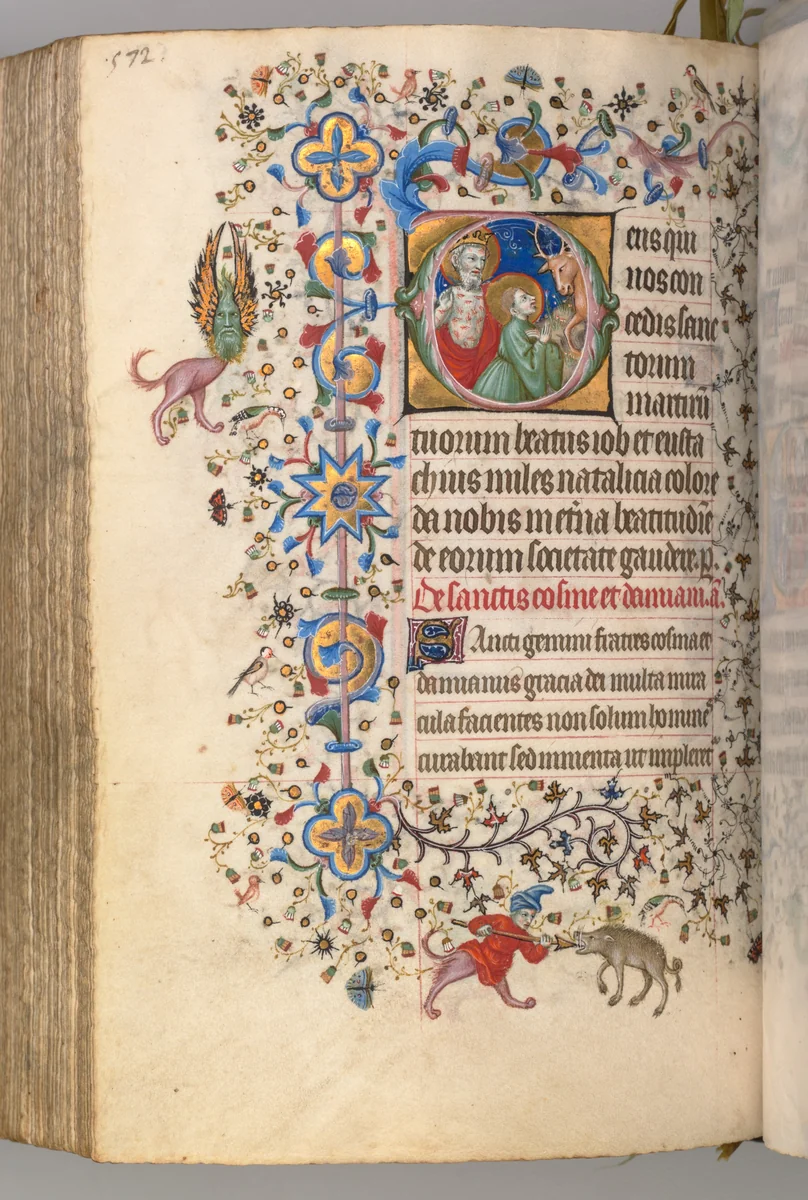 572
Deus qui
nos con
cedis sanc
torum
martirū
tuorum beatus iob et eusta
chius miles natalicia colore
da nobis in et̄na beatitudīe
de eorum societate gaudere. p.
De sanctis cosme et damiani. a̅.
Sancti gemini fratres cosma et
damianus gracia dei multa mira
cula facientes non solum homine᷒
curabant sed iumenta ut impleret